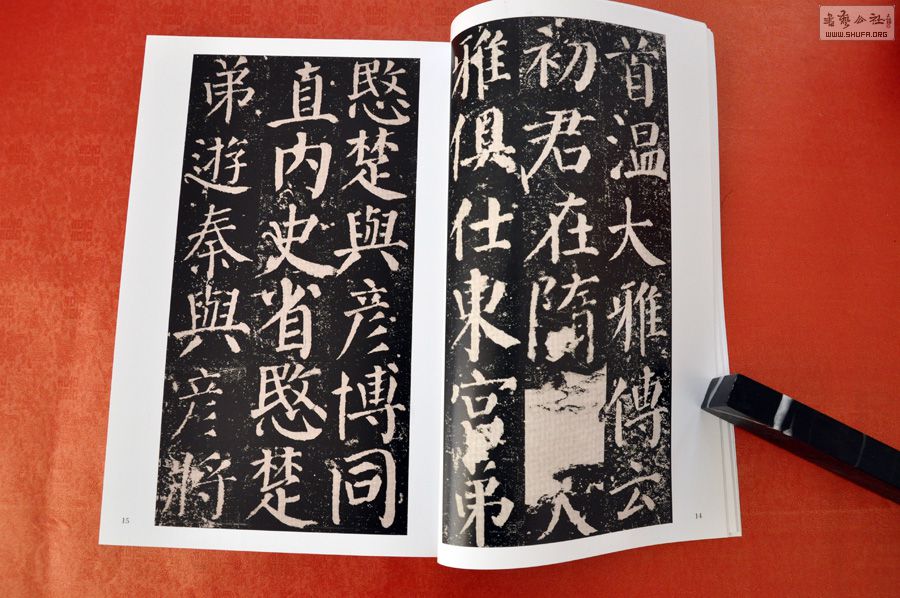 首温大雅傳云
初君在隋 大
雅俱仕東宫弟
愍楚與彦博同
直内史省愍楚
弟遊秦與彦將
14
15
WWW.SHUFA.ORG